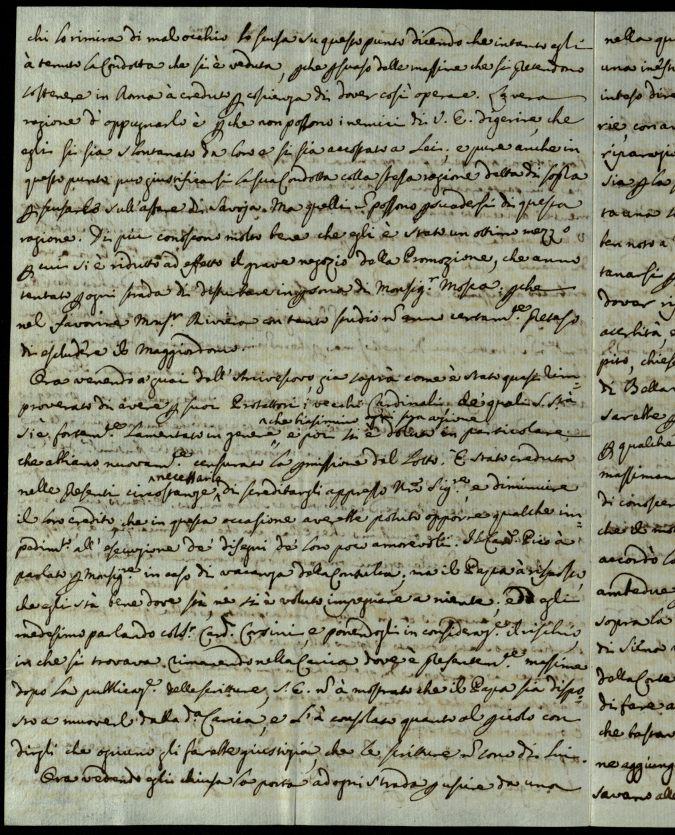 chi lo rimira di mal occhio lo scusa su questo punto dicendo che intanto egli
à tenuto la Condotta che si è veduta, pche psuaso dalle massime che si pretendono
sostenere in Roma à creduto p cosienza di dover così operare. La vera
ragione d'oppugnarlo è pche non possono i nemici di S. E. digerire, che
egli si sia slontanato da loro e si sia accostato a Lei, e pure anche in
questo punto può giustificarsi la sua Condotta colla stessa ragione detta di sopra
p scusarlo sull'affare di Savoja. Ma quelli n possono psuadersi di questa
ragione. Di più conoscono molto bene che egli è stato un ottimo mezzo
p cui si è ridotto ad effetto il grave negozio della Promozione, che anno
tentato p ogni strada di disputare in psona di Monsig.r Mosca, pche
nel favorire Mons.r Riviera con tanto studio n anno certam.te preteso
di escludere il Maggiordomo.
Ora venendo a guai dell'Arcivescovo già saprà come è stato quasi rim=
proverato di avere p suoi Protettori i vecchi Cardinali de quali S. Stà
si è fortem.te lamentato in genere, e poi si è doluto in particolare
che biasimino ogni sua azione
che abbiano nuovam.te censurato la pmissione del Lotto. È stato creduto
nelle presenti circostanze, necessario di screditargli appresso N.ro Sig.re, e diminuire
il loro credito, che in questa occasione averebbe potuto opporre qualche im=
pedim.to all'esecuzione de' disegni de loro poco amorevoli. Il Card. Pico à
parlato p Monsig.re in caso di vacanza della Consulta; ma il Papa à risposto,
che egli stà bene dove stà, ne si è voluto impegnare a niente. ed egli
medesimo parlando col S.r Card. Corsini, e ponendogli in consideraz.e il rischio,
in che si trovava rimanendo nella Carica dove è presentem.te massime
dopo la pubblicaz.e delle scritture, S. E. n à mostrato che il Papa sia dispo=
sto a muoverlo dalla d.a Carica, e l'à consolato quanto al picolo con
dirgli che ognuno gli farebbe giustizia, che le scritture n sono di lui.
Ora vedendo egli chiusa la porta ad ogni strada p uscire da una
nella qu
inteso dire
rie, con
sia p la p
ta una
ben noto a
tanarsi p
dover ri
acerbità, e
pito, chies
di Bellar
sarebbe p
p qualche
massimam
di conoscen
accordò lo
ambedue
sopra la
di Silva
dalla Corte
di fare a
che bastar
ne aggiung
savano alle